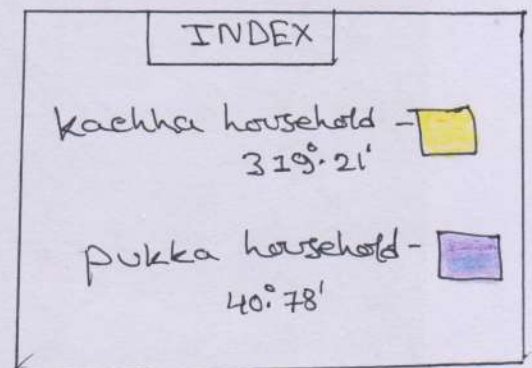 INDEX
kachha household -
319°.21'
pukka household -
40°.78'